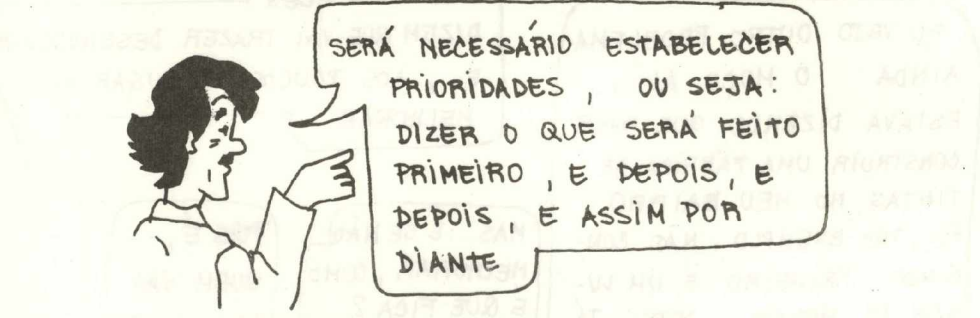 SERÁ NECESSÁRIO ESTABELECER
PRIORIDADES, OU SEJA:
DIZER O QUE SERÁ FEITO
PRIMEIRO, E DEPOIS, E
DEPOIS, E ASSIM POR
DIANTE